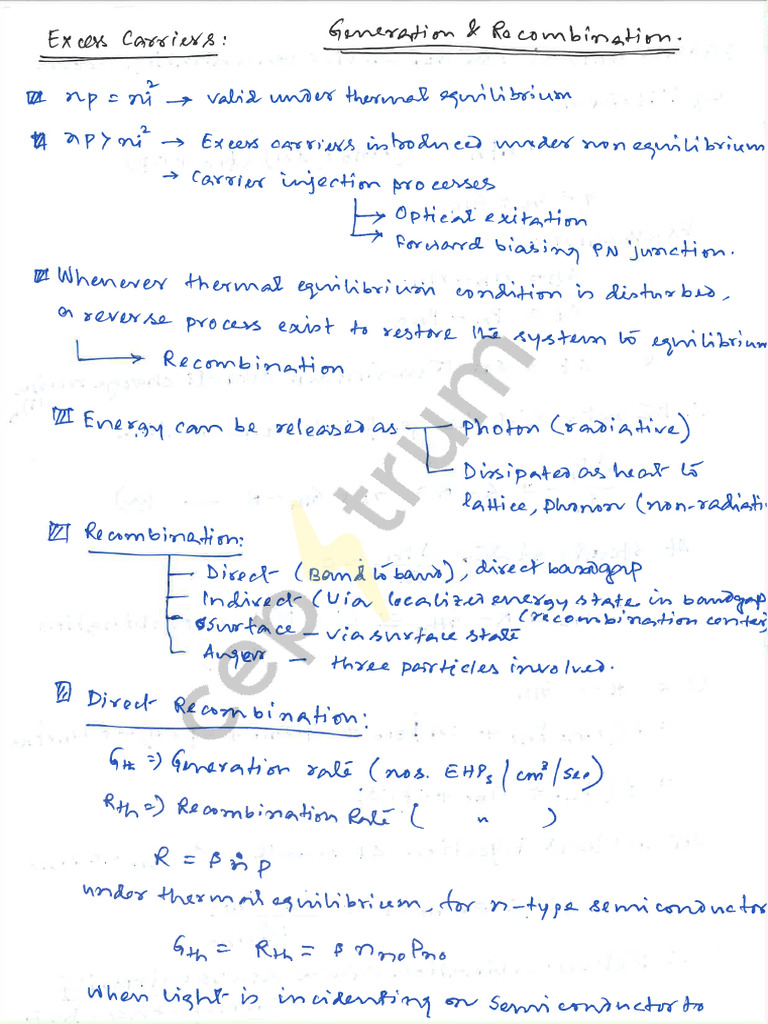 Excess Carriers: Generation & Recombination.
np = ni² → valid under thermal equilibrium
np > ni² → Excess carriers introduced under non equilibrium
→ Carrier injection processes
→ Optical exitation
→ Forward biasing PN junction.
Whenever thermal equilibrium condition is disturbed,
a reverse process exist to restore the system to equilibrium
→ Recombination
Energy can be released as Photon (radiative)
Dissipated as heat to
lattice, phonon (non-radiati
Recombination:
Direct (Band to band), direct bandgap
Indirect (via localized energy state in bandgap
(recombination center)
Surface – via surface state
Auger – three particles involved.
Direct Recombination:
Gth ⇒ Generation rate (nos. EHPs/cm³/sec)
Rth ⇒ Recombination Rate ( " )
R = β n p
under thermal equilibrium, for n-type semiconductor
Gth = Rth = β nno Pno
when light is incidenting on semiconductor to
ceptrum